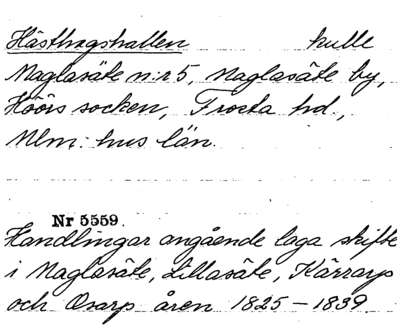 Hästhagshallen kulle
Maglasäte n:r 5, Maglasäte by,
Höörs socken, Frosta hd.,
Mlm: hus län.
Nr 5559.
Handlingar angående laga skifte
i Maglasäte, Lillasäte, Kärrarp
och Osarp åren 1825 – 1839